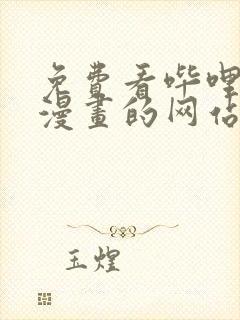 免费看哔哩
漫畫的网佔
玉煌